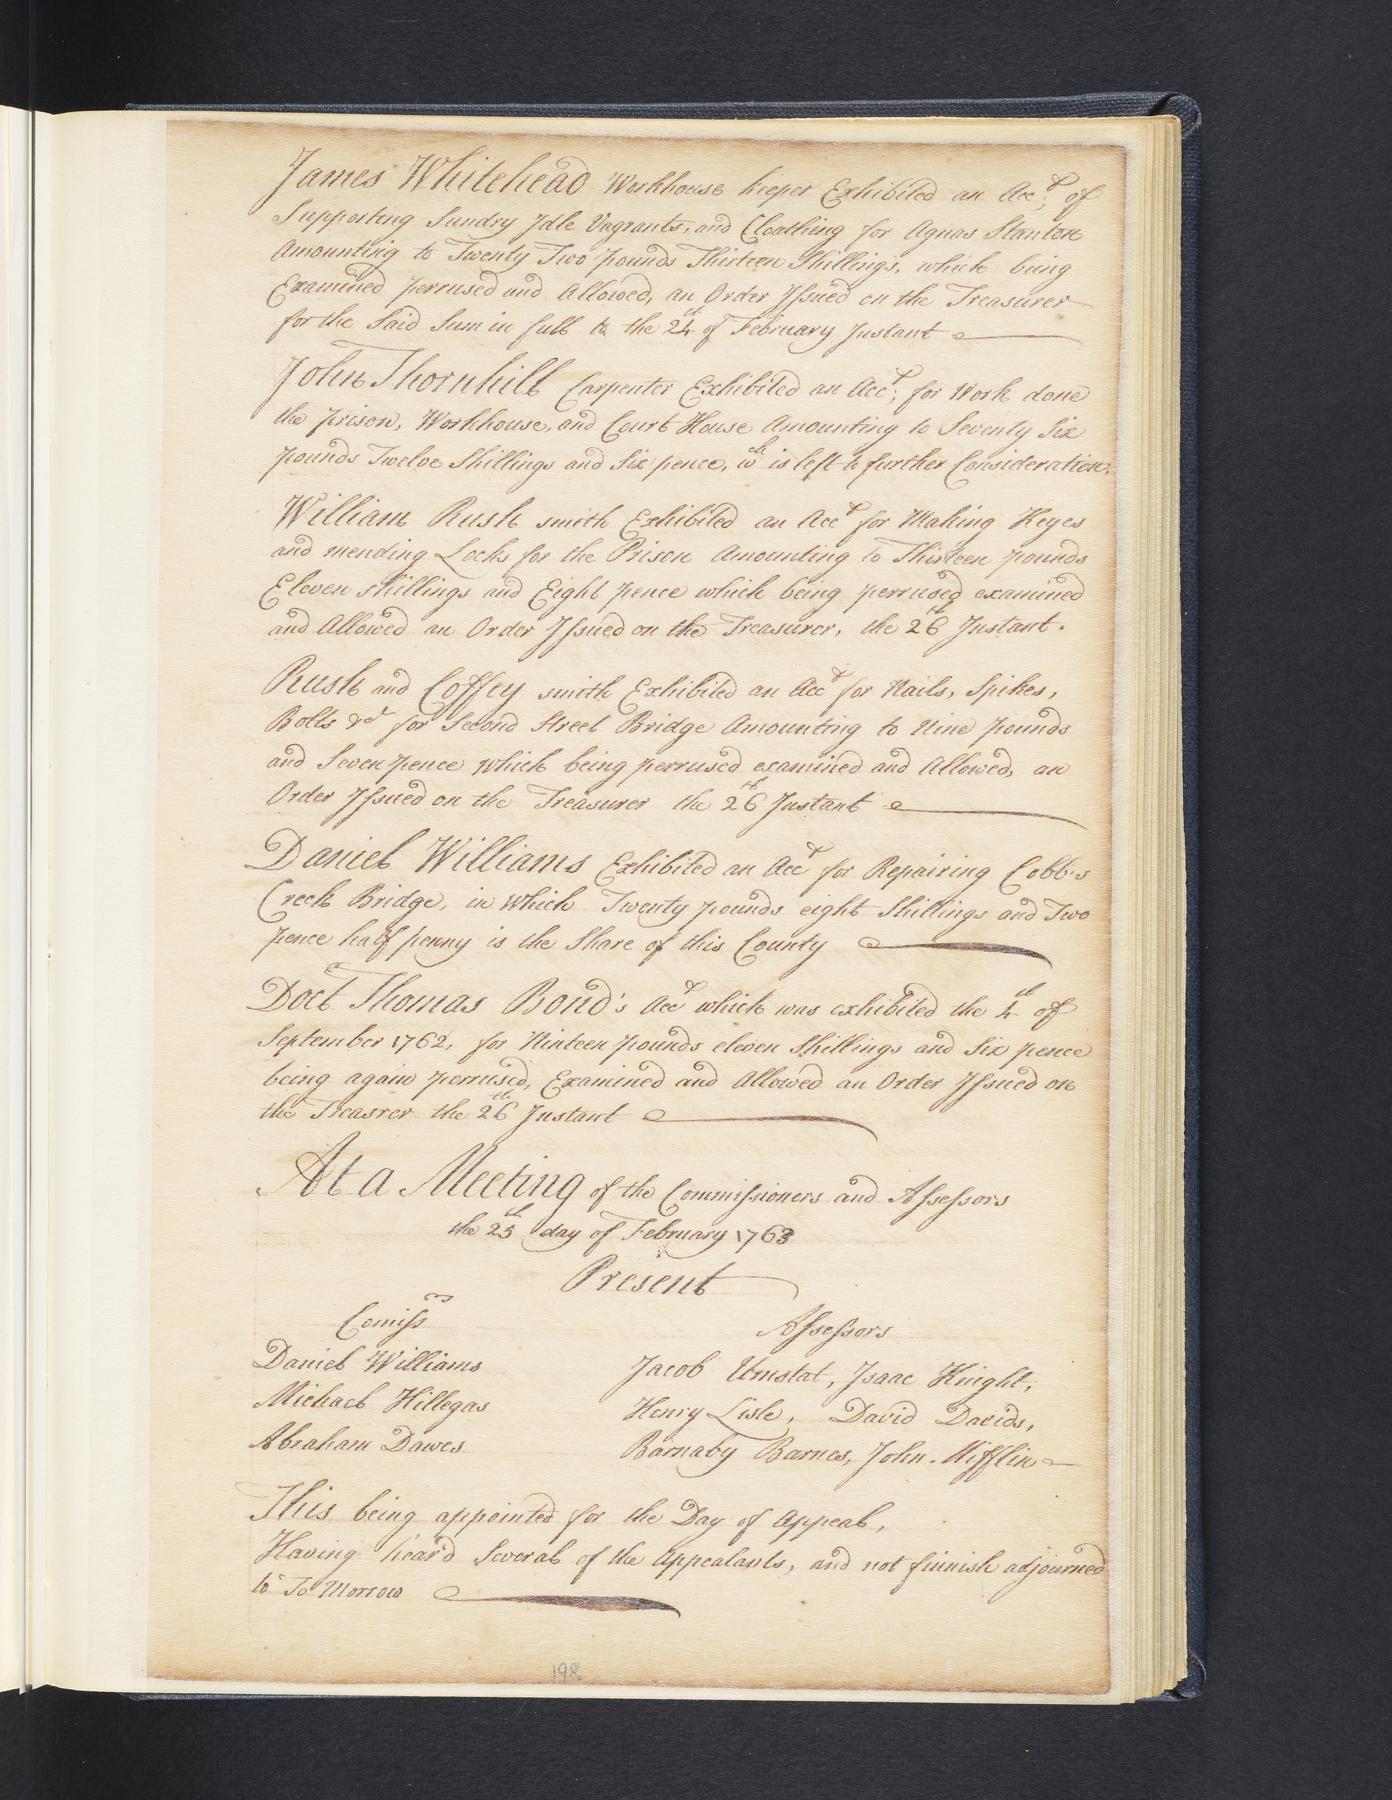 James Whitehead Workhouse keeper Exhibited an Acct; of
Supporting Sundry Idle Vagrants, and Cloathing for Agnas Stanton
Amounting to Twenty Two pounds Thirteen Shillings, which being
Examined perrused and Allowed, an Order Issued on the Treasurer
for the Said Sum in full to the 24th of February Instant
John Thornhill Carpenter Exhibited an Acct; for Work done
the prison, Workhouse, and Court House Amounting to Seventy Six
pounds Twelve Shillings and Six pence, wch is left to further Consideration.
William Rush smith Exhibited an Acct for Making Keyes
and mending Locks for the Prison Amounting to Thirteen pounds
Eleven shillings and Eight pence which being perrused examined
and Allowed an Order Issued on the Treasurer, the 26th Instant.
Rush and Coffey smith Exhibited an Acct for Nails, Spikes,
Bolts &ca for Second Street Bridge Amounting to Nine pounds
and Seven pence which being perrused examined and Allowed, an
Order Issued on the Treasurer the 26th Instant
Daniel Williams Exhibited an Acct for Repairing Cobb's
Creek Bridge, in which Twenty pounds eight Shillings and Two
pence half penny is the Share of this County
Doct Thomas Bond's Acct which was exhibited the 4th of
September 1762, for Ninteen pounds eleven Shillings and Six pence
being again perrused, Examined and Allowed an Order Issued on
the Treasrer the 26th Instant
At a Meeting of the Commissioners and Assessors
the 25th day of February 1763
Present
Comissrs
Assessors
Daniel Williams
Jacob Umstat, Isaac Knight,
Michael Hillegas
Henry Lisle, David Davids,
Abraham Dawes
Barnaby Barnes, John Mifflin
This being appointed for the Day of Appeal,
Having heard Several of the Appealants, and not finnish adjourned
to To Morrow
198